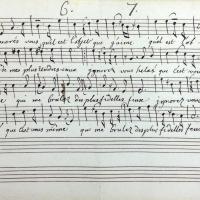 6. 7.
ignorés vous quel est l'objet que j'aime quel est l'ob
de mes plus tendres vœux ignorés vous helas! que c'est vous
me qui me brulez des plus fidelles feux ignorez vous
que c'est vous même qui me brulez des plus fidelles feux